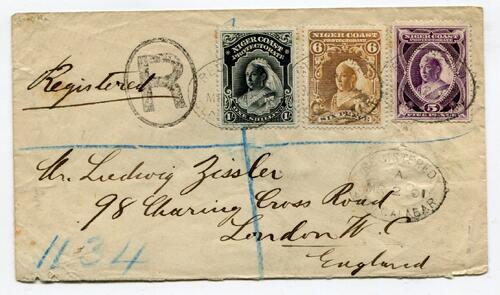 R
NIGER COAST
PROTECTORATE
1/-
ONE SHILLING
1/-
NIGER COAST
6
6
SIX PENCE
NIGER COAST
PROTECTORATE
5
FIVE PENCE
Registered
REGISTERED
A
2
CALABAR
Mr. Ludwig Zissler
98 Charing Cross Road
London W C
England
1134